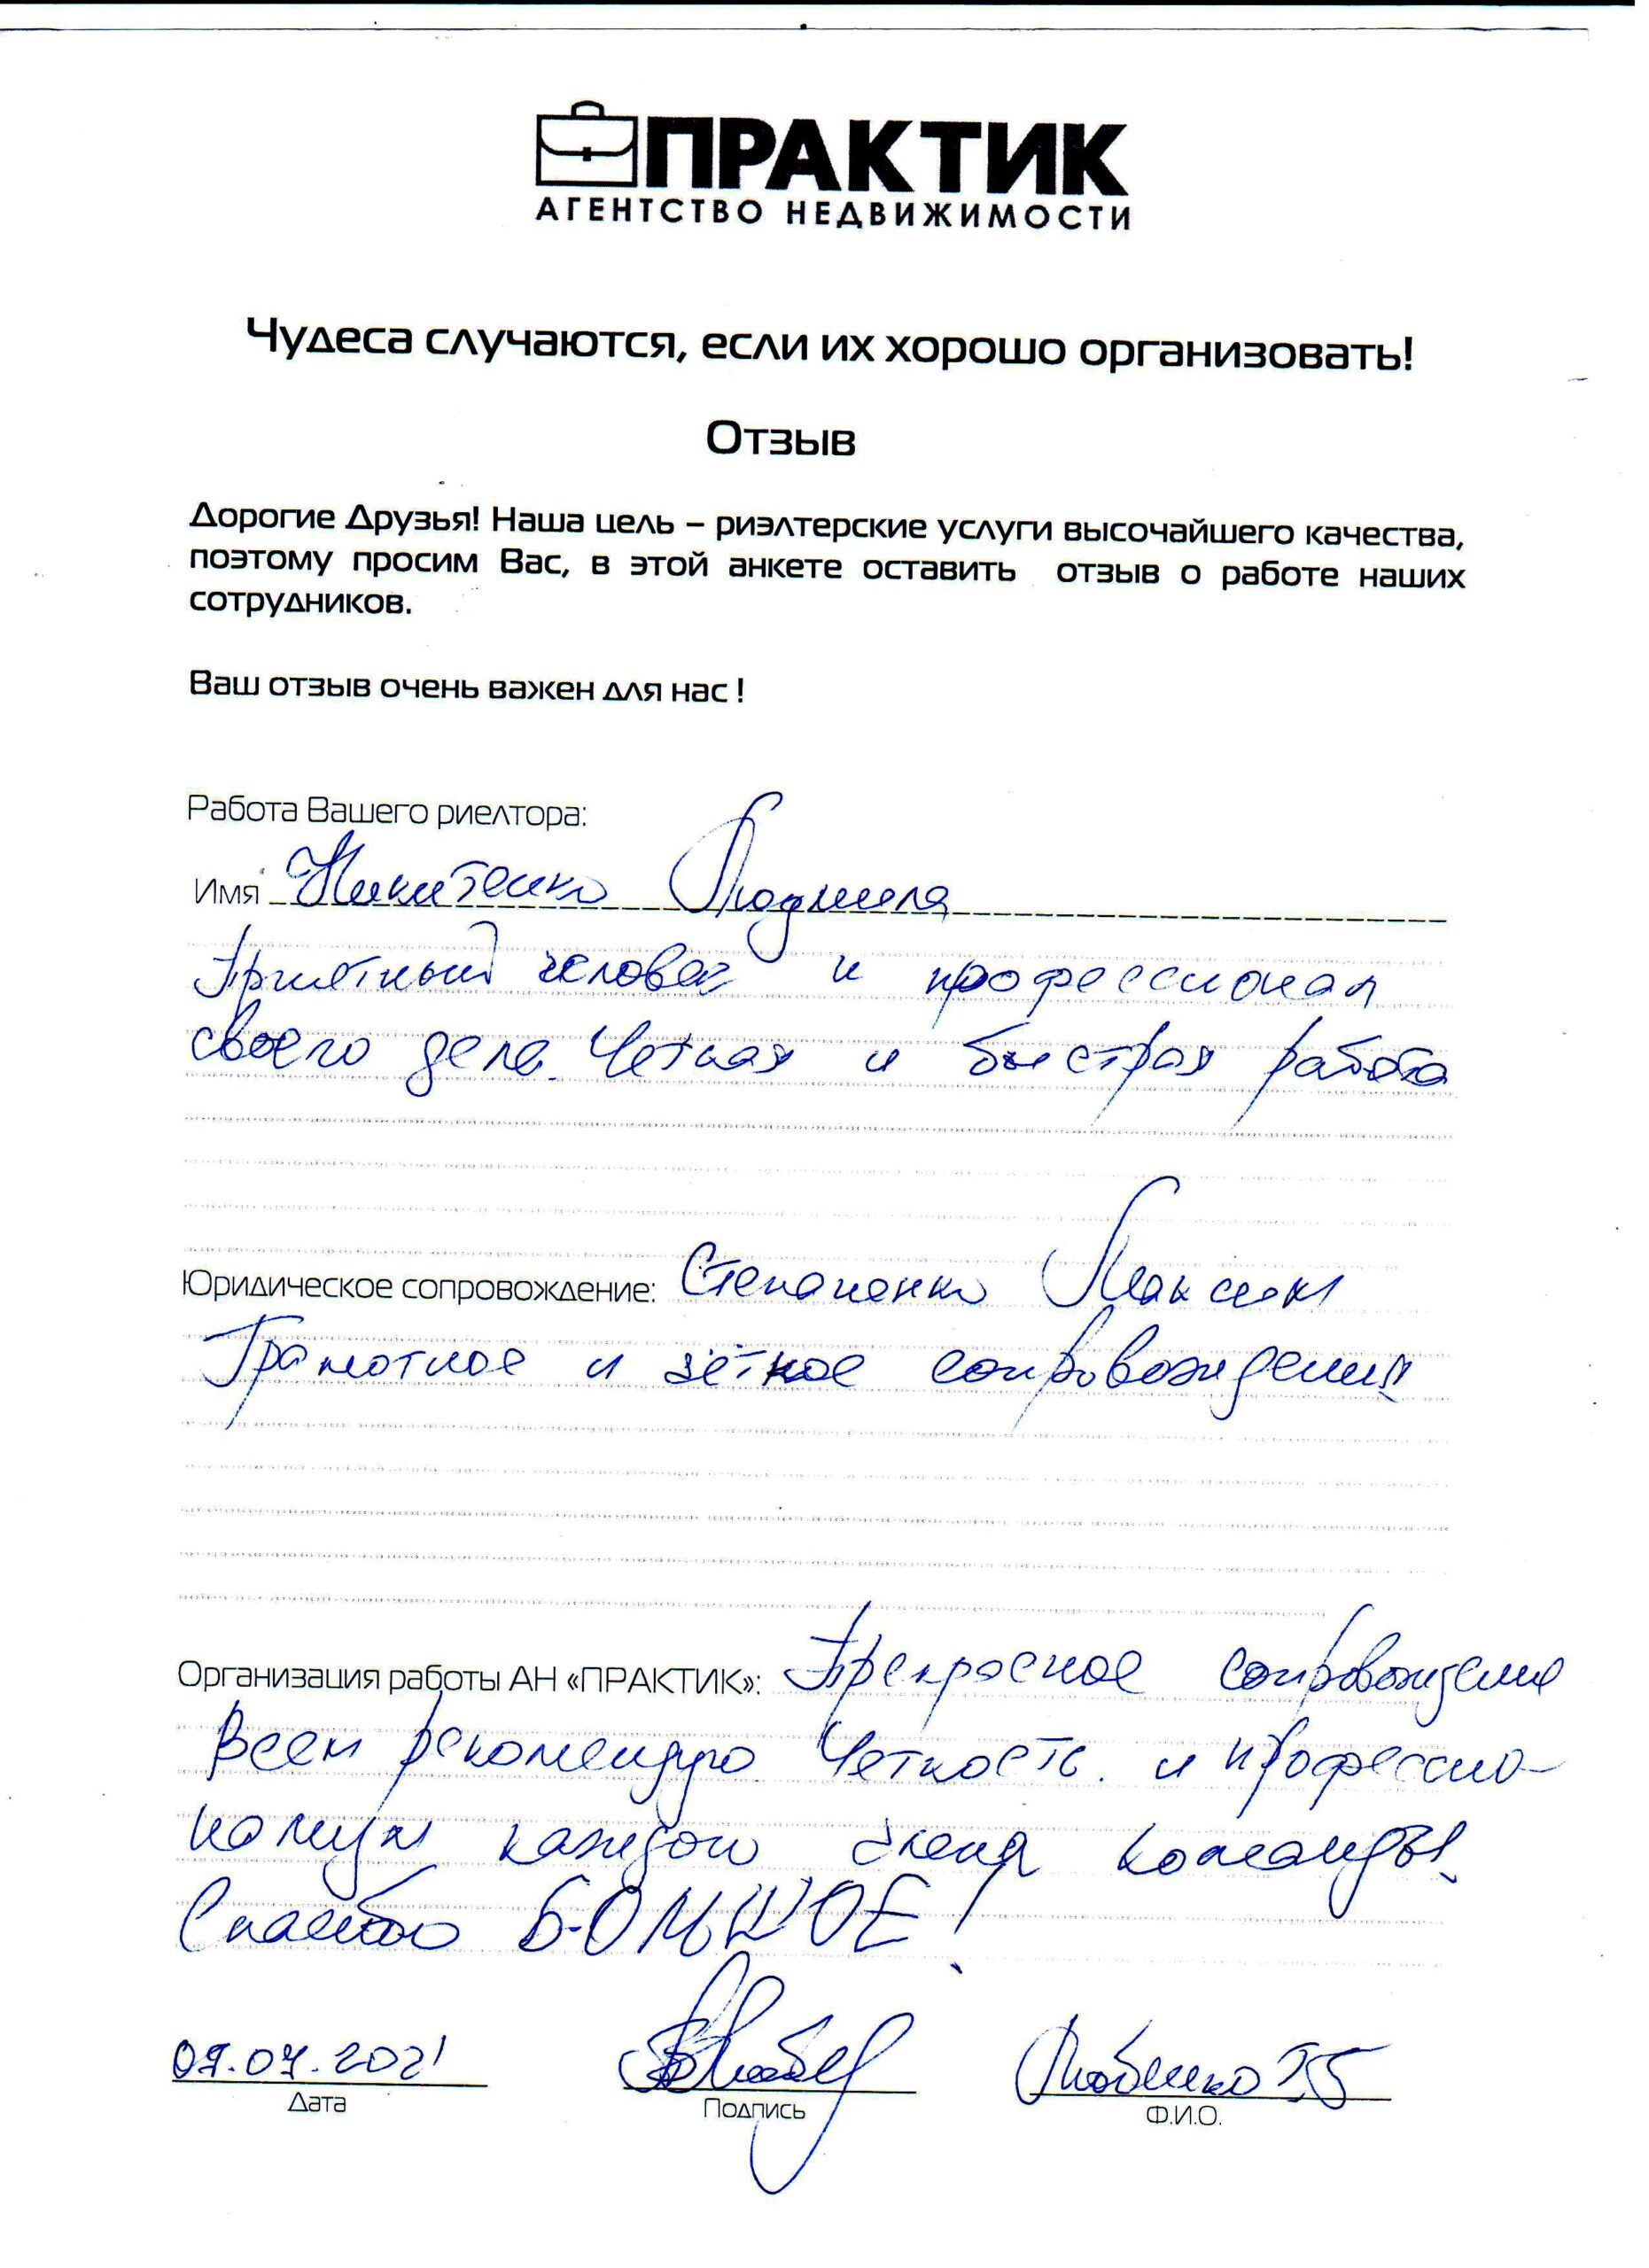 ПРАКТИК
АГЕНТСТВО НЕДВИЖИМОСТИ
Чудеса случаются, если их хорошо организовать!
Отзыв
Дорогие Друзья! Наша цель – риэлтерские услуги высочайшего качества,
поэтому просим Вас, в этой анкете оставить отзыв о работе наших
сотрудников.
Ваш отзыв очень важен для нас !
Работа Вашего риелтора:
Имя Никитенко Людмила
Приятный человек и профессионал
своего дела. Четкая и быстрая работа
Юридическое сопровождение: Степаненко Максим
Грамотное и чёткое сопровождения
Организация работы АН «ПРАКТИК»: Прекрасное сопровождение
Всем рекомендую Четкость и профессио-
нализм каждого члена команды.
Спасибо БОЛЬШОЕ!
09.07.2021
Дата
Подпись
Ф.И.О.